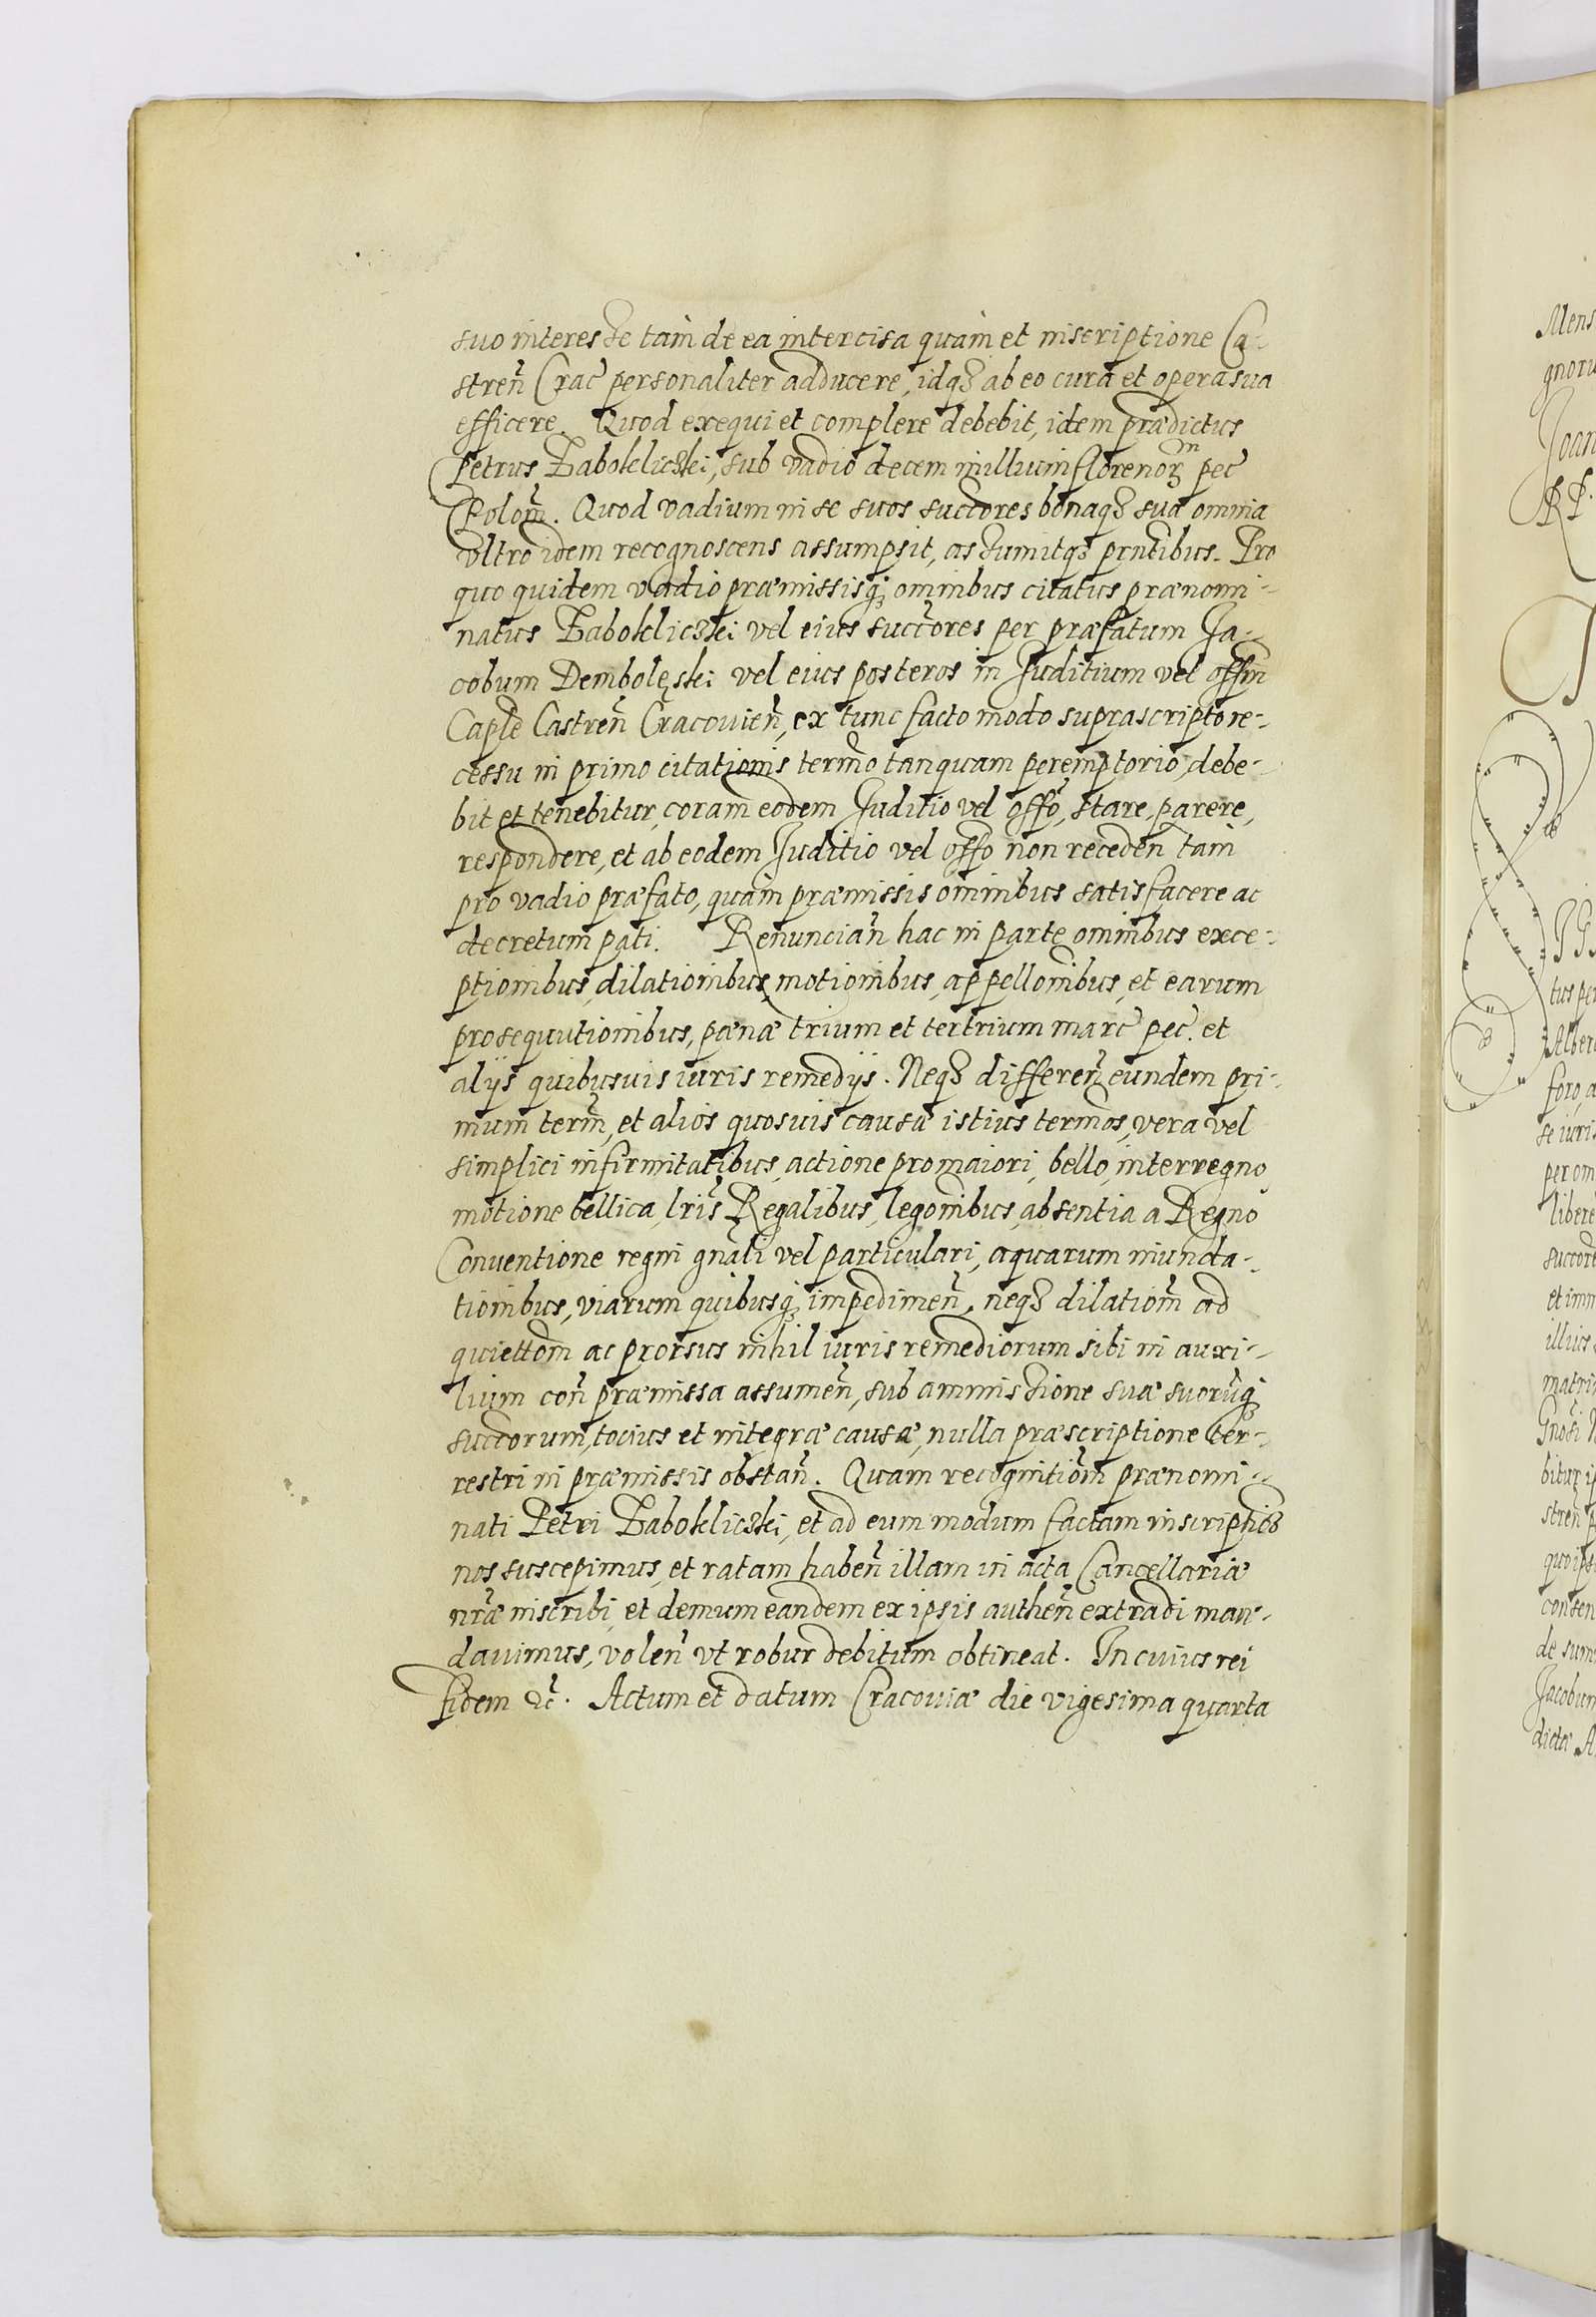 suo interesse tam de ea intercisa quam et inscriptione Ca-
streñ Crac̃ personaliter adducere, idqȝ ab eo cura et opera sua
efficere. Quod exequi et complere debebit, idem prædictus
Petrus Zabokliczki, sub vadio decem millium florenorum pec̃
Poloñ. Quod vadium in se suos succ̃ores bonaqȝ sua omnia
vltro idem recognoscens assumpsit, assumitqȝ pñtibus. Pro
quo quidem vadio præmissisqȝ omnibus citatus prænomi-
natus Zabokliczki vel eius succ̃ores per præfatum Ja-
cobum Dembolęski vel eius posteros in Juditium vel offm̃
Capl̃e Castreñ Cracovień, ex tunc facto modo suprascripto re-
cessu in primo citationis termõ tanquam peremptorio, debe-
bit et tenebitur, coram eodem Juditio vel offõ, stare, parere,
respondere, et ab eodem Juditio vel offõ non recedeñ tam
pro vadio præfato, quam præmissis omnibus satisfacere ac
decretum pati. Renunciañ hac in parte omnibus exce-
ptionibus, dilationibus, motionibus, appellõnibus, et earum
prosequutionibus, pœnæ trium et tertrium marc̃ pec̃. et
alÿs quibusuis iuris remedÿs. Neqȝ differeñ eundem pri-
mum term̃, et alios quosuis causæ istius termõs, vera vel
simplici infirmitatibus, actione pro maiori, bello, interregno,
motione bellica, lr̃is Regalibus, legõnibus, absentia a Regno
Conuentione regni gñali vel particulari, aquarum inunda-
tionibus, viarum quibusqȝ impedimeñ, neqȝ dilatiom̃ ad
quiettom̃ ac prorsus nihil iuris remediorum sibi in auxi-
lium coñ præmissa assumeñ, sub ammissione suæ suorũqȝ
succ̃orum, tocius et integræ causæ, nulla præscriptione ter-
restri in præmissis obstañ. Quam recognitiom̃ prænomi-
nati Petri Zabokliczki, et ad eum modum factam inscriptiõ
nos suscepimus, et ratam habeñ illam in acta Cancellariæ
nr̃æ inscribi, et demum eandem ex ipsis autheñ extradi man-
dauimus, voleñ vt robur debitum obtineat. In cuius rei
fidem &c̃. Actum et datum Cracouiæ die vigesima quarta
Mens
gnoru
Joan
tus per
Alber
foro, a
se iuri
per om
libere
succore
et imm
illius
matri
Gnosi
bitur ip
streñ p
quo ips
consen
de sum
Jacobum
dictæ A